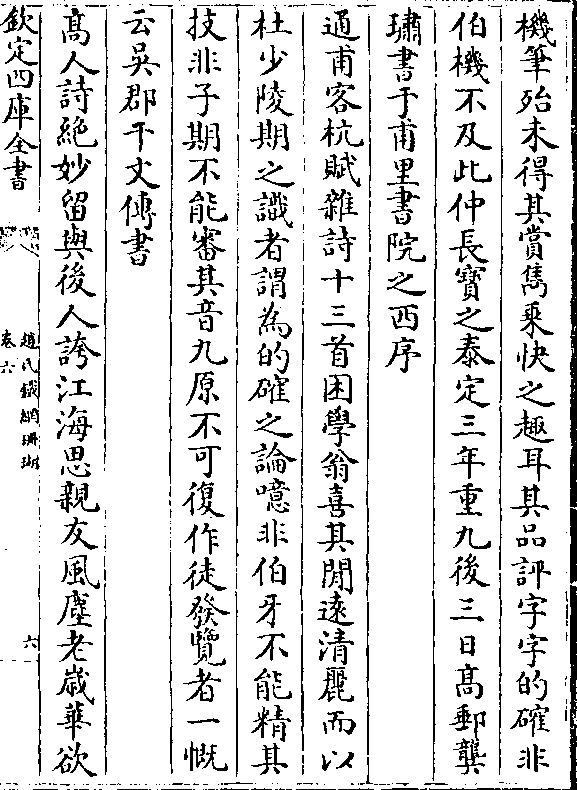 機筆殆未得其賞雋乘快之趣耳其品評字字的確非
伯機不及此仲長寳之泰定三年重九後三日髙郵龔
璛書于甫里書院之西序
通甫客杭賦雜詩十三首困學翁喜其閒遠清麗而以
杜少陵期之識者謂為的確之論噫非伯牙不能精其
技非子期不能審其音九原不可復作徒發覽者一慨
云吳郡干文傳書
髙人詩絶妙留與後人誇江海思親友風塵老嵗華欲
欽定四庫全書
趙氏鐵網珊瑚
卷六
六